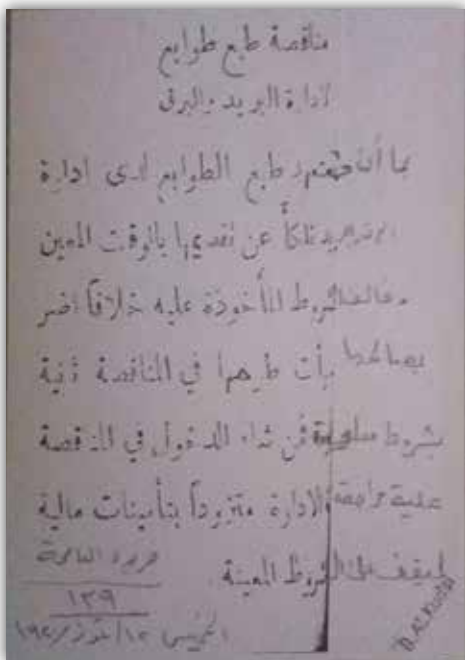 مناقصة طبع طوابع
لادارة البريد والبرق
بما أن متعهد طبع الطوابع لدى ادارة
البريد تلكأ عن تقديمها بالوقت المعين
وخالف الشروط المأخوذة عليه خلافاً اضر
بصالحها طرحها في المناقصة ثانية
بشروط فمن شاء الدخول في المناقصة
عليه مراجعة الادارة متزوداً بتأمينات مالية
ليقف على الشروط المعينة.
جريدة العاصمة
١٣٩
الخميس ١٢/
B.AlKudsi